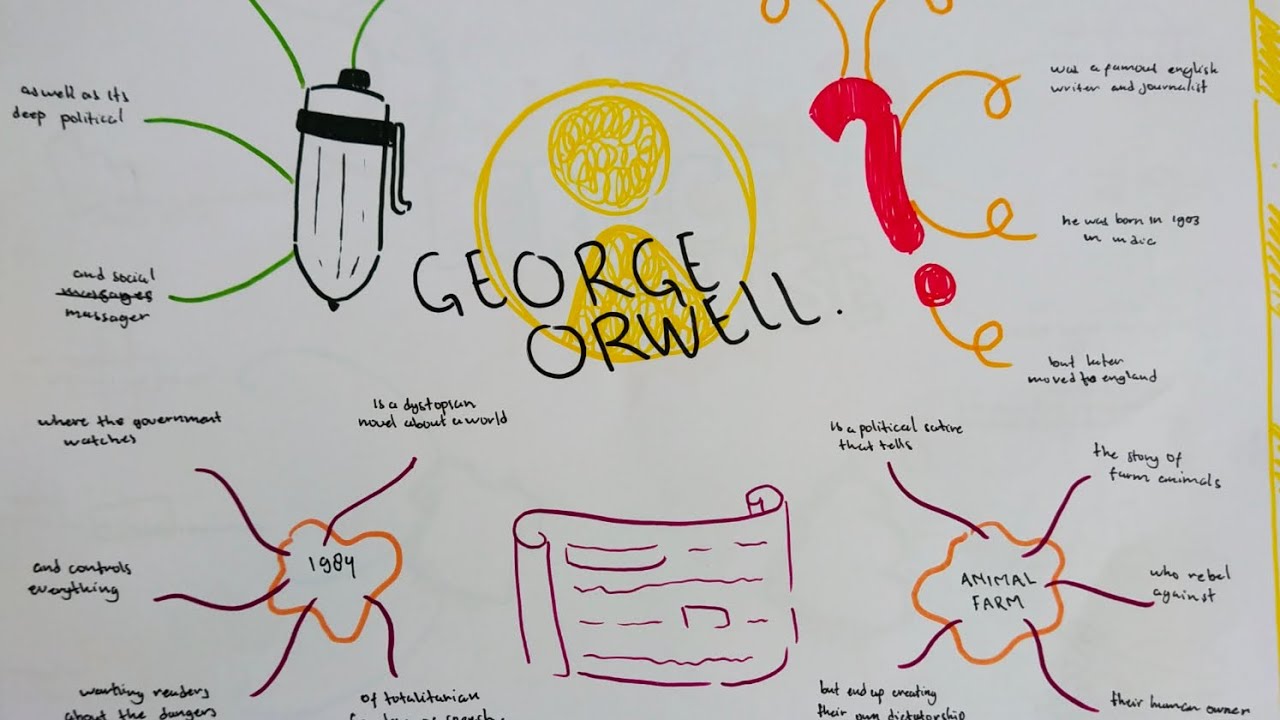 as well as its
deep political
and social
massages
massager
GEORGE
ORWELL.
was a famous english
writer and journalist
he was born in 1903
in India
but later
moved to england
1984
is a dystopian
novel about a world
where the government
watches
and controls
everything
warning readers
about the dangers
of totalitarian
ANIMAL
FARM
is a political satire
that tells
the story of
farm animals
who rebel
against
their human owner
but end up creating
their own dictatorship